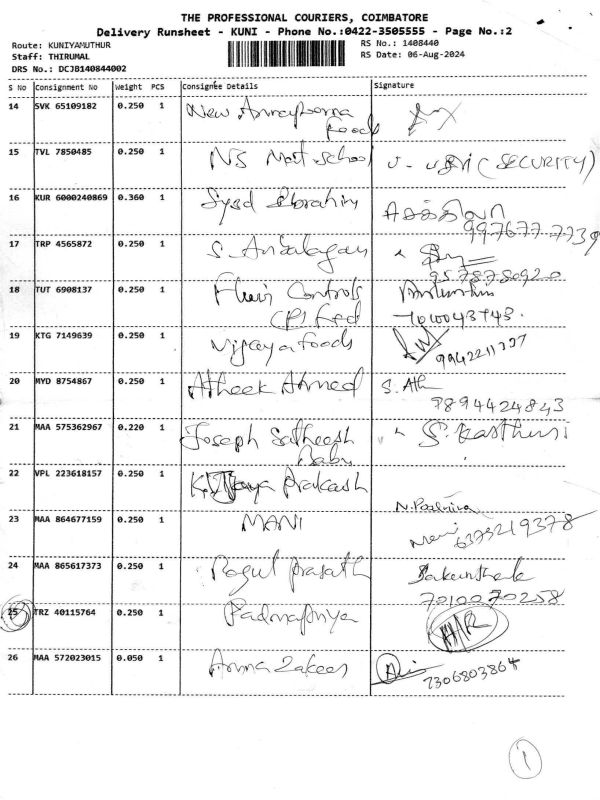 THE PROFESSIONAL COURIERS, COIMBATORE
Delivery Runsheet - KUNI - Phone No.:0422-3505555 - Page No.:2
Route: KUNIYAMUTHUR
RS No.: 1408440
Staff: THIRUMAL
RS Date: 06-Aug-2024
DRS No.: DCJB140844002
S No Consignment No Weight PCS Consignee Details Signature
14 SVK 65109182 0.250 1 New Annapoorna
Foods
15 TVL 7850485 0.250 1 NS Matt School (SECURITY)
16 KUR 6000240869 0.360 1 Syed Ibrahim
997677 7739
17 TRP 4565872 0.250 1 S. Anbalagan
9578780920
18 TUT 6908137 0.250 1 Controls
7010043743.
19 KTG 7149639 0.250 1 Vijaya Foods
9942211727
20 MYD 8754867 0.250 1 Atheek Ahmed S. Ath
7894424843
21 MAA 575362967 0.220 1 Joseph Satheesh S. Kasthuri
Babu
22 VPL 223618157 0.250 1 Jaya Prakash
23 MAA 864677159 0.250 1 MANI Mani
6375219378
24 MAA 865617373 0.250 1 Ragul Prasath
7010070258
25 TRZ 40115764 0.250 1 Padmapriya
26 MAA 572023015 0.050 1 Anma Zakeer
7306803864
1